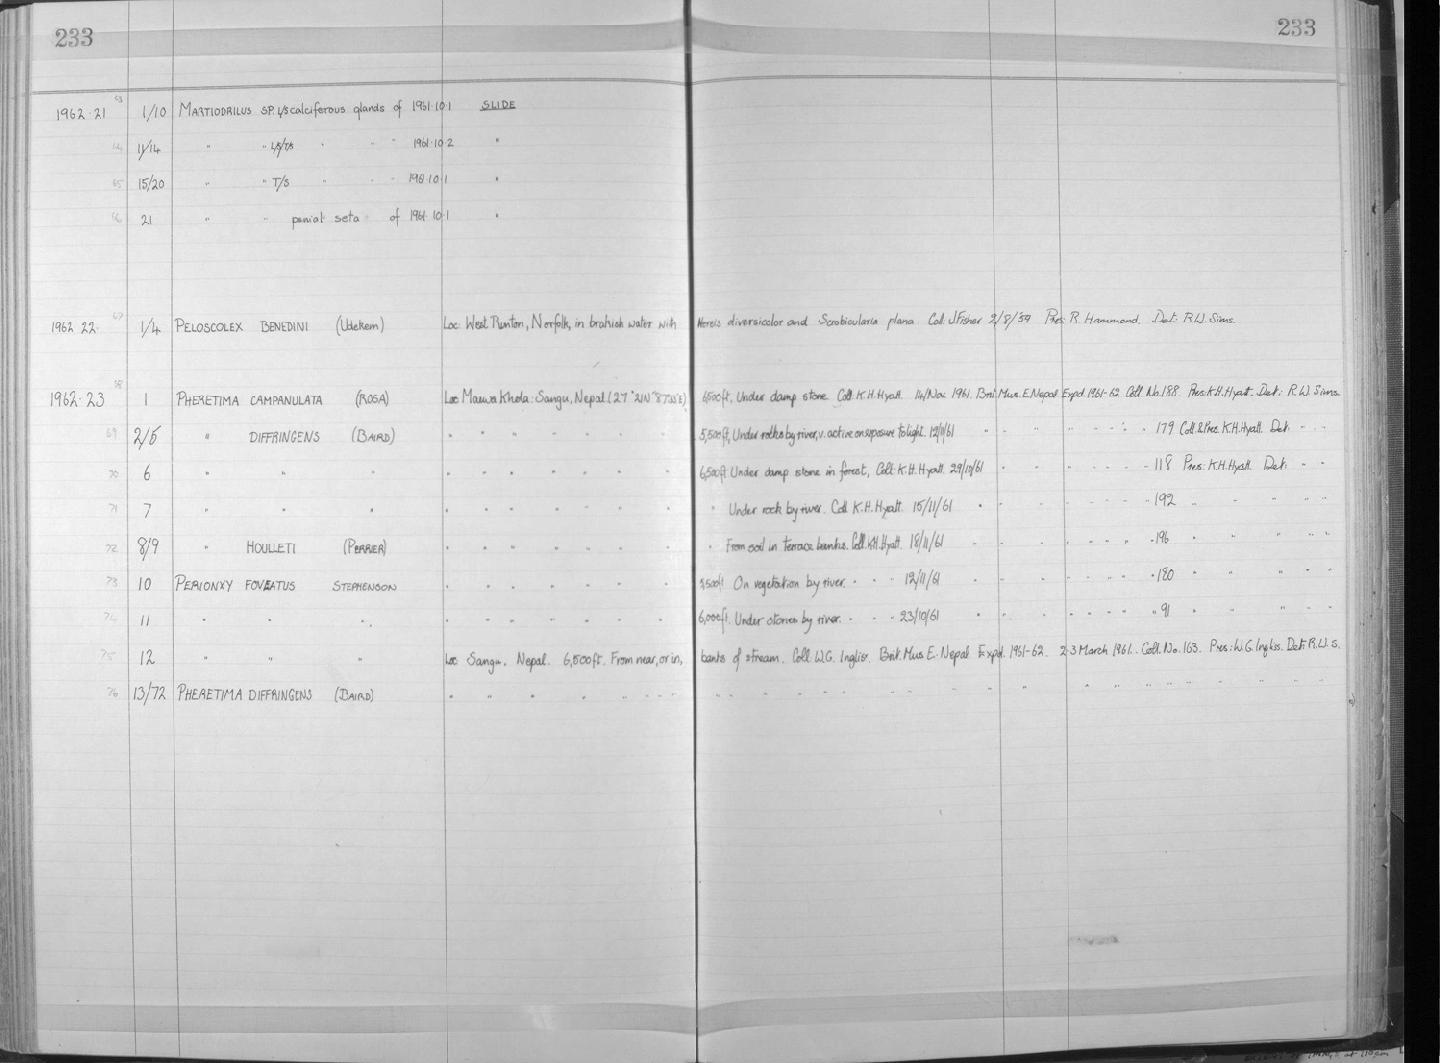 233 233
63
1962·21 1/10 MARTIODRILUS SP. L/S calciferous glands of 1961·10·1 SLIDE
64 11/14 " " L/S/T/S " " " 1961·10·2 "
65 15/20 " " T/S " " " 1961·10·1 "
66 21 " " penial seta " of 1961·10·1 "
67
1962 22· 1/4 PELOSCOLEX BENEDINI (Udekem) Loc: West Runton, Norfolk, in brakish water with Nereis diversicolor and Scrobicularia plana Coll. J Fisher 2/8/59 Pres: R. Hammond. Det: R.W. Sims
68
1962·23 1 PHERETIMA CAMPANULATA (ROSA) Loc Mawa Khola: Sangu, Nepal 6,500ft, Under damp stone Coll. K.H. Hyatt. 14/Nov. 1961. Brit Mus. E. Nepal Expd 1961-62 Coll No. 188. Pres: K.H. Hyatt. Det: R.W Sims
69 2/5 " DIFFRINGENS (BAIRD) " " " " " " " 5,500ft, Under rocks by river, v. active on exposure to light. 12/11/61 " " " " " " " 179 Coll. & Pres K.H. Hyatt. Det. " "
70 6 " " " " " " " " " " 6,500ft Under damp stone in forest, Coll. K.H. Hyatt. 29/10/61 " " " " " " 118 Pres: K.H. Hyatt. Det: " "
71 7 " " " " " " " " " " " Under rock by river. Coll K.H. Hyatt. 15/11/61 " " " " " " 192 " " " " "
72 8/9 " HOULLETI (PERRIER) " " " " " " " " From soil in terrace banks. Coll. K.H. Hyatt. 18/11/61 " " " " " " 196 " " " " "
73 10 PERIONXY FOVEATUS STEPHENSON " " " " " " " On vegetation by river. " " " 12/11/61 " " " " " " 180 " " " " "
74 11 " " " " " " " " " " 6,000ft. Under stones by river. " " " 23/10/61 " " " " " " 91 " " " " "
75 12 " " " Loc Sangu, Nepal. 6,500ft. From near, or in, banks of stream. Coll. W.G. Inglis. Brit. Mus. E. Nepal Expd. 1961-62. 23 March 1961. Coll. No. 163. Pres: W.G. Inglis. Det: R.W. S.
76 13/72 PHERETIMA DIFFRINGENS (BAIRD) " " " " " " " " " " " " " " " " " " " " " " " "